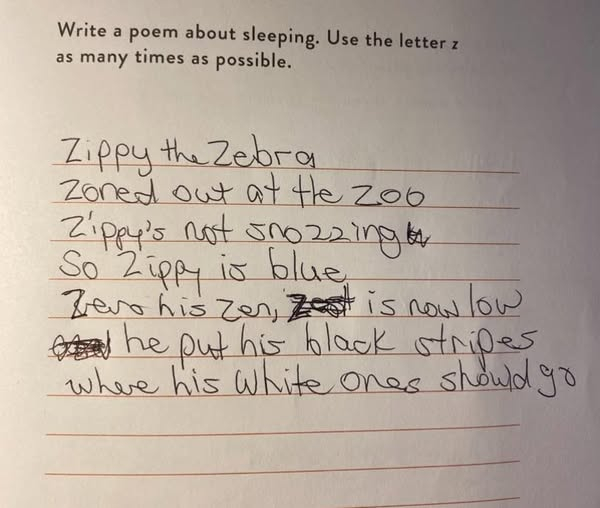 Write a poem about sleeping. Use the letter z
as many times as possible.
Zippy the Zebra
zoned out at the zoo
Zippy's not snozzing
So Zippy is blue
Zero his zen, is now low
he put his black stripes
where his white ones should go